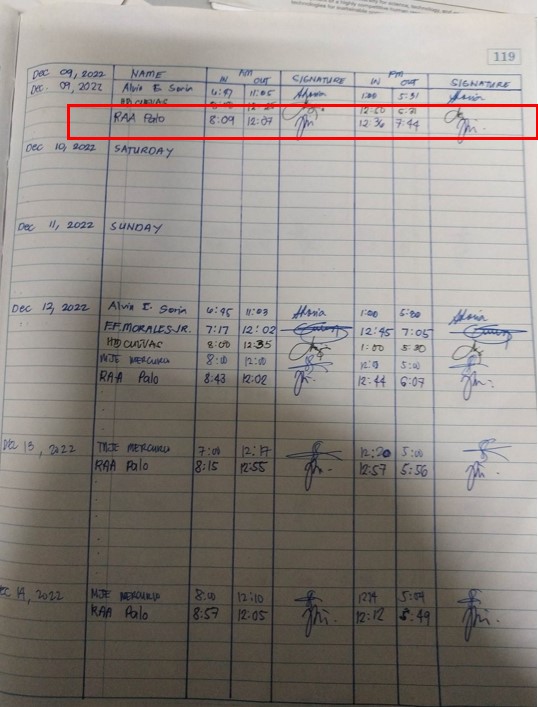 119
DEC 09, 2022 NAME AM IN OUT SIGNATURE PM IN OUT SIGNATURE
DEC. 09, 2022 Alvin E. Soria 6:47 11:05 1:00 5:31
HD CUEVAS 12:50
RAA Palo 8:09 12:07 12:36 7:44
Dec 10, 2022 SATURDAY
Dec 11, 2022 SUNDAY
Dec 12, 2022 Alvin E. Soria 6:45 11:03 1:00 5:30
F.F. MORALES JR. 7:17 12:02 12:45 7:05
HD CUEVAS 8:00 12:35 1:00 5:30
MJE MERCURIO 8:00 12:00 5:00
RAA Palo 8:43 12:02 12:44 6:07
Dec 13, 2022 MJE MERCURIO 7:00 12:17 12:20 5:00
RAA Palo 8:15 12:55 12:57 5:56
14, 2022 MJE MERCURIO 8:00 12:10 5:04
RAA Palo 8:57 12:05 12:12 5:49